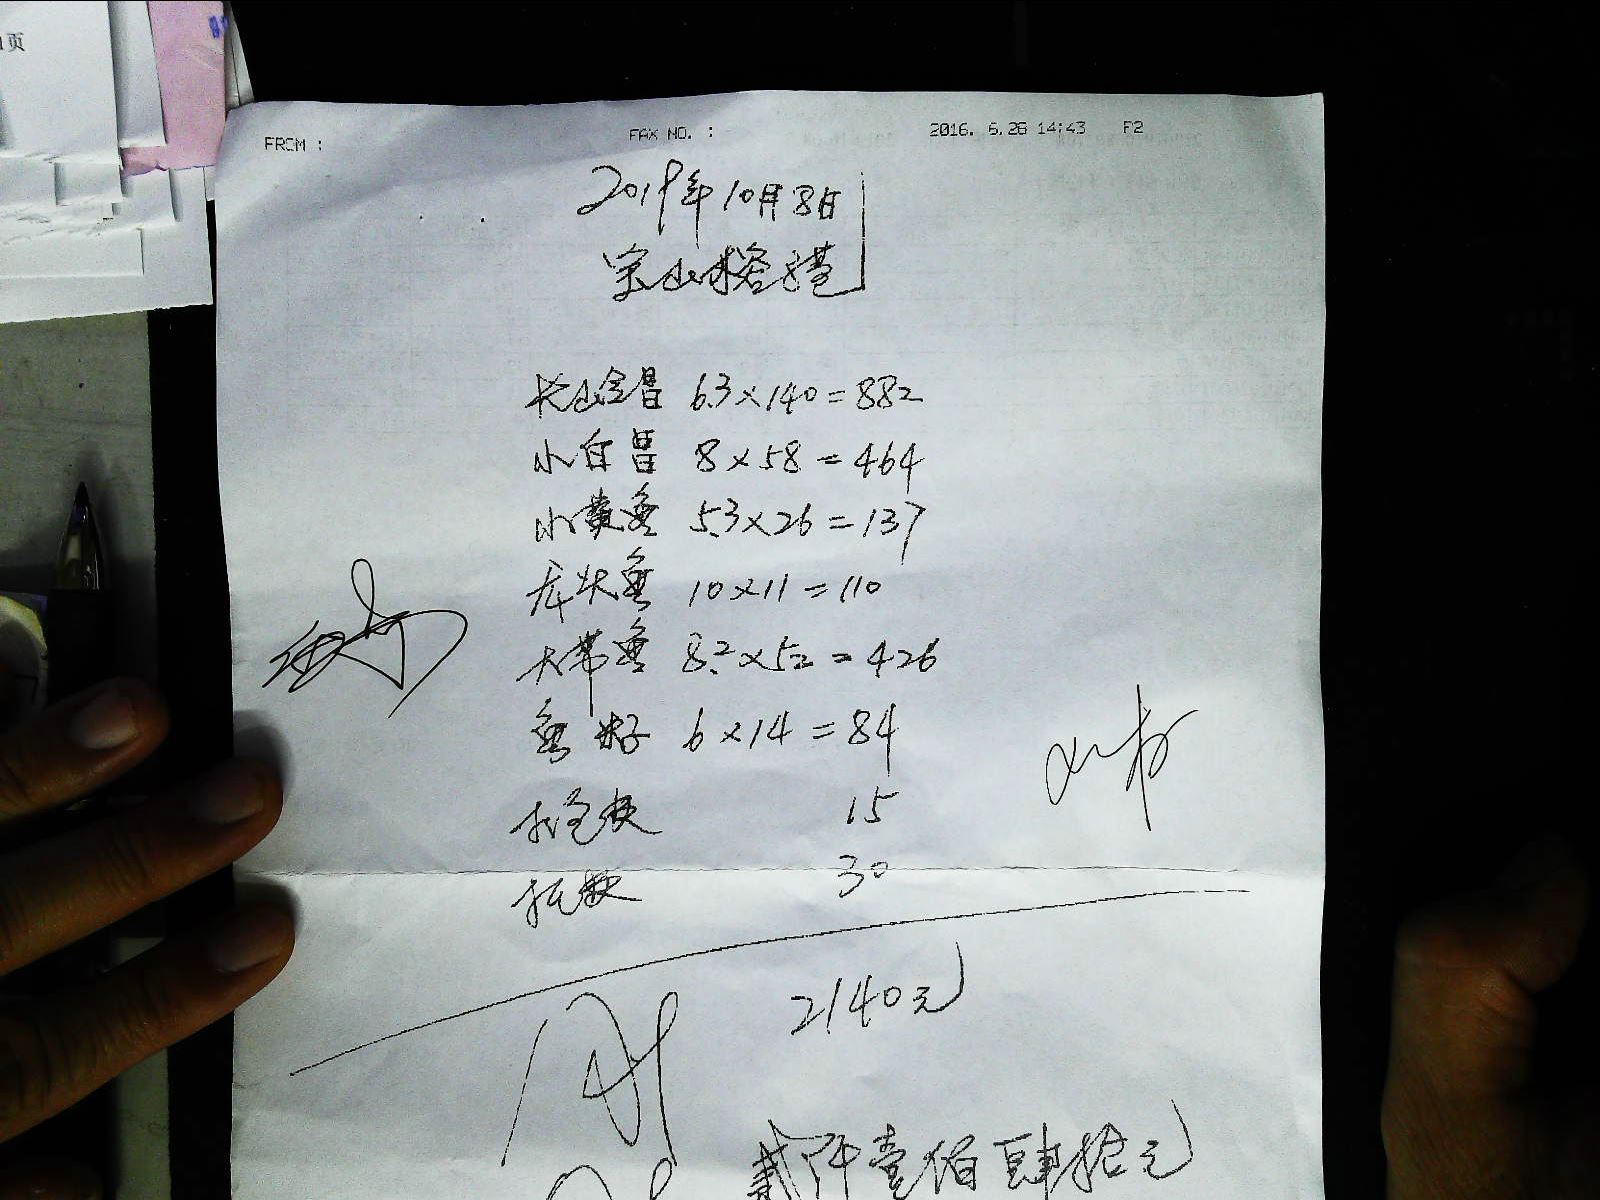 1页
FROM :
FAX NO. :
2016. 6.26 14:43 P2
2019年10月8日
长山全昌 6.3×140=882
小白昌 8×58=464
小黄鱼 5.3×26=137
龙头鱼 10×11=110
大带鱼 8.2×52=426
鱼籽 6×14=84
15
30
2140元
贰仟壹佰肆拾元